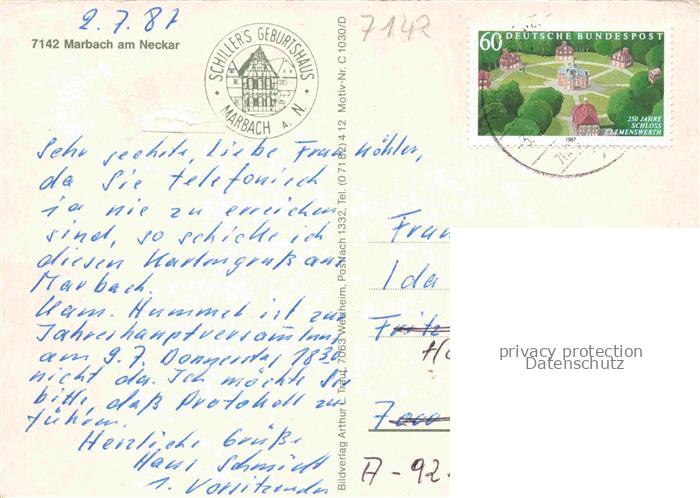 2.7.87
7142 Marbach am Neckar
SCHILLER'S GEBURTSHAUS
MARBACH A. N.
7142
60 DEUTSCHE BUNDESPOST
250 JAHRE
SCHLOSS
CLEMENSWERTH
1987
Sehr geehrte, liebe Frau Köhler,
da Sie telefonisch
ja nie zu erreichen
sind, so schicke ich
diesen Kartengruß aus
Marbach.
Kam. Hummel ist zur
Jahreshauptversammlung
am 9.7. Donnerstag 1830
nicht da. Ich möchte Sie
bitte, daß Protokoll zu
führen.
Herzliche Grüße
Hans Schmidt
1. Vorsitzender
Bildverlag Arthur F. Traut, 7063 Welzheim, Postfach 1332, Tel. (07182) 412 Motiv-Nr. C 1030/D
Frau
Ida
Fritz
Ho
7000
A-92-
privacy protection
Datenschutz